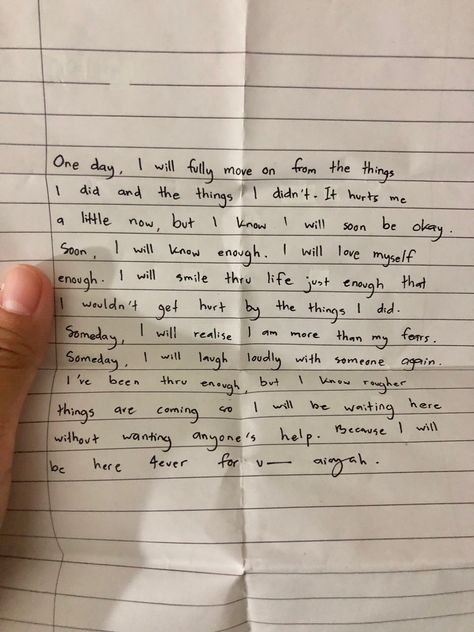 One day, I will fully move on from the things
I did and the things I didn't. It hurts me
a little now, but I know I will soon be okay.
Soon, I will know enough. I will love myself
enough. I will smile thru life just enough that
I wouldn't get hurt by the things I did.
Someday, I will realise I am more than my fears.
Someday, I will laugh loudly with someone again.
I've been thru enough, but I know rougher
things are coming so I will be waiting here
without wanting anyone's help. Because I will
be here 4ever for u—